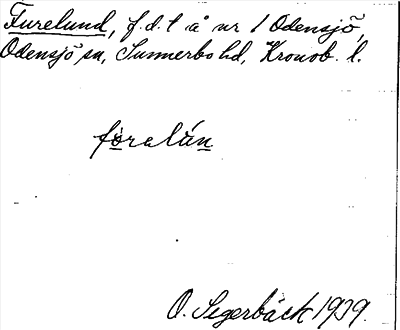 Furelund, f.d. t å nr 1 Odensjö,
Odensjö sn, Sunnerbo hd, Kronob. l.
förelún
O. Segerbäck 1939.